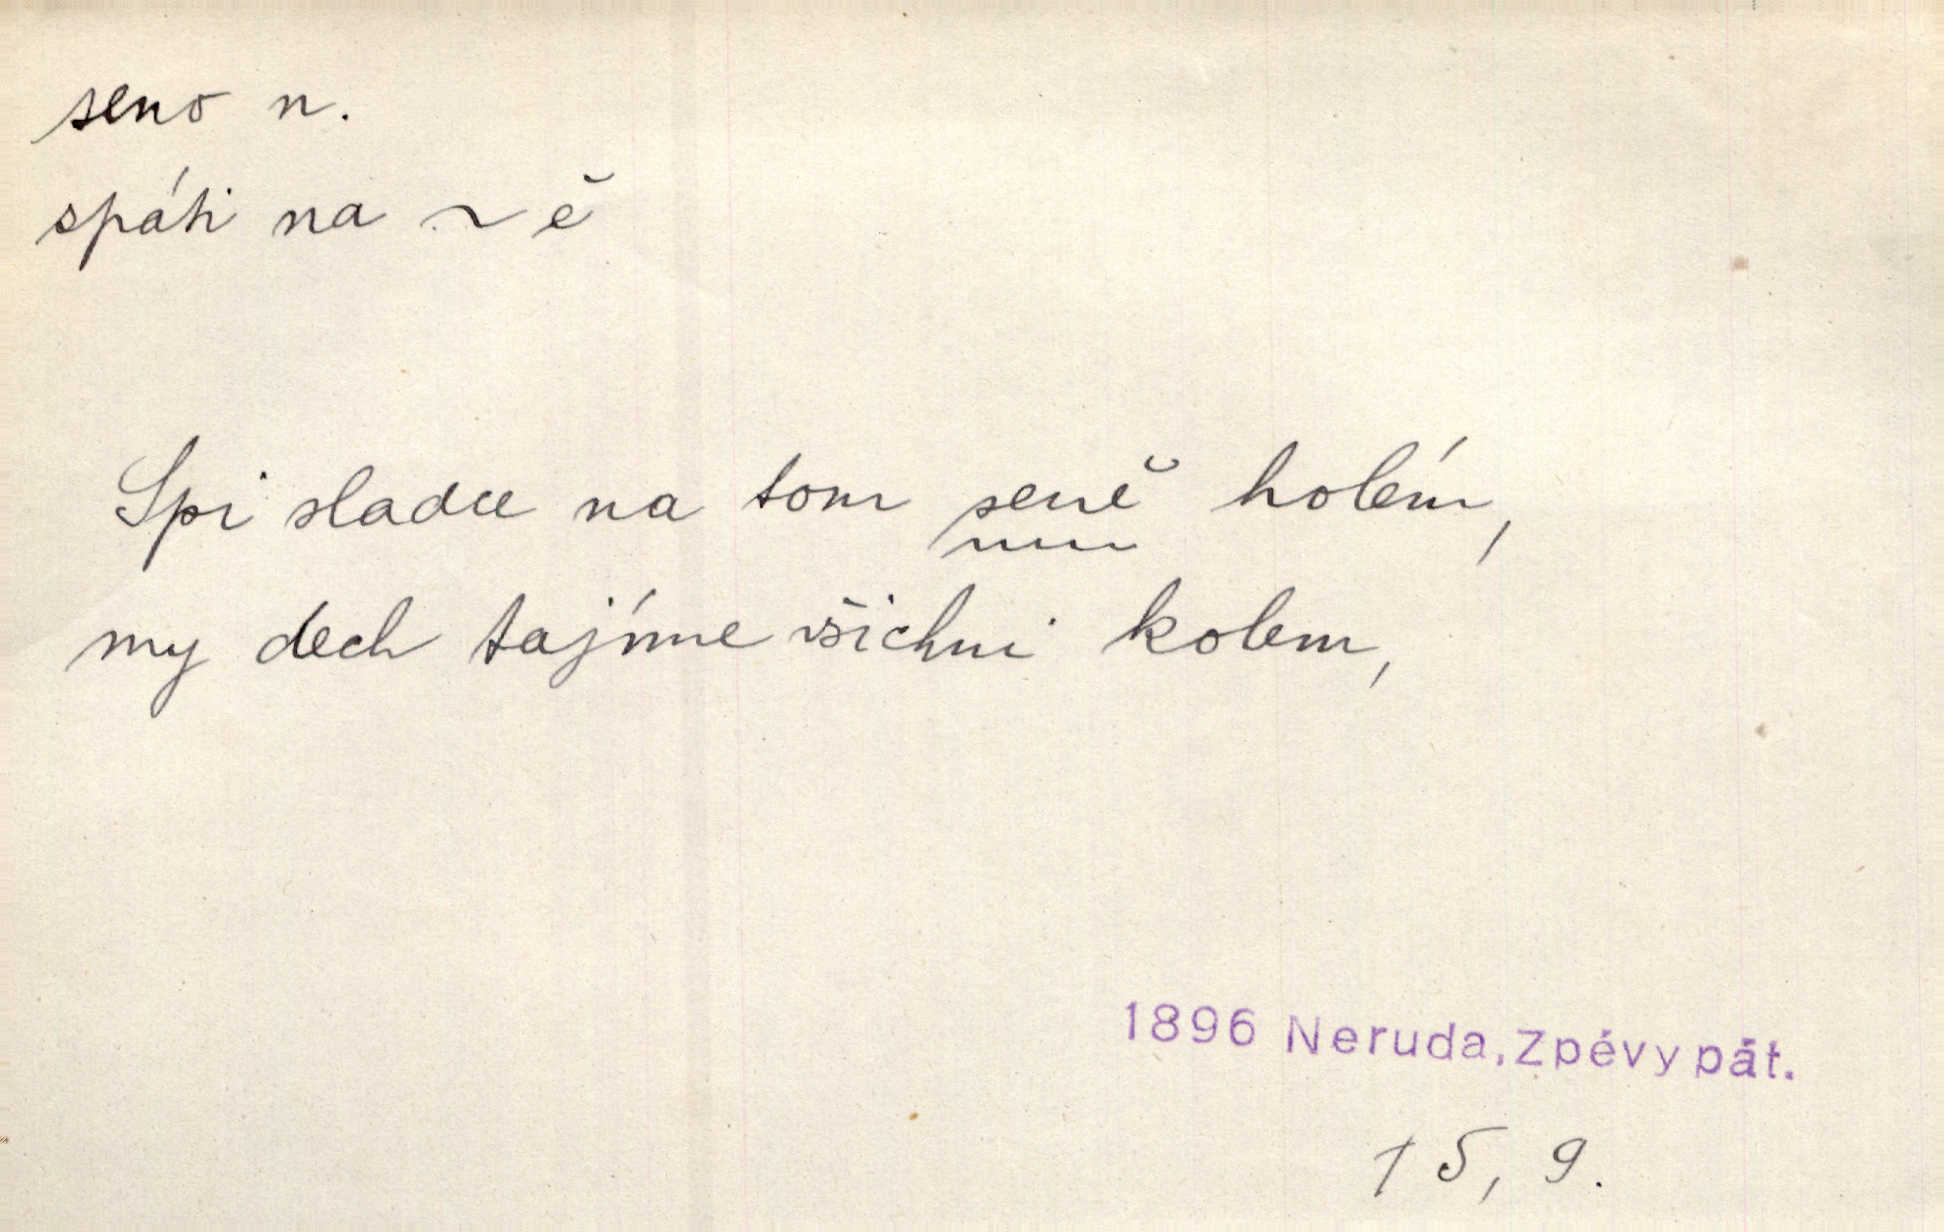 seno n.
spáti na ~ě
Spi sladce na tom seně holém,
my dech tajíme všichni kolem,
1896 Neruda, Zpěvy pát.
15, 9.